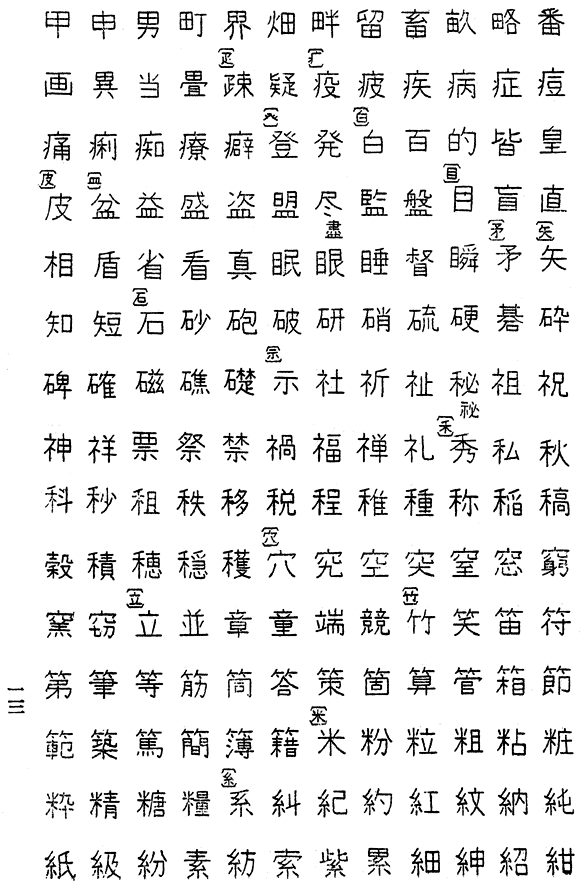 甲申男町界畑畔留畜畝略番
画異当畳〔疋〕疎疑〔疒〕疫疲疾病症痘
痛痢痴療癖〔癶〕登発〔白〕白百的皆皇
〔皮〕皮〔皿〕盆益盛盗盟尽監盤〔目〕目盲直
盡
相盾省看真眠眼睡督瞬〔矛〕矛〔矢〕矢
知短〔石〕石砂砲破研硝硫硬碁砕
碑確磁礁礎〔示〕示社祈祉秘祖祝
祕
神祥票祭禁禍福禅礼〔禾〕秀私秋
科秒租秩移税程稚種称稲稿
穀積穂穏穫〔穴〕穴究空突窒窓窮
窯窃〔立〕立並章童端競〔竹〕竹笑笛符
第筆等筋筒答策箇算管箱節
範築篤簡簿籍〔米〕米粉粒粗粘粧
粋精糖糧〔糸〕系糾紀約紅紋納純
紙級紛素紡索紫累細紳紹紺
一三